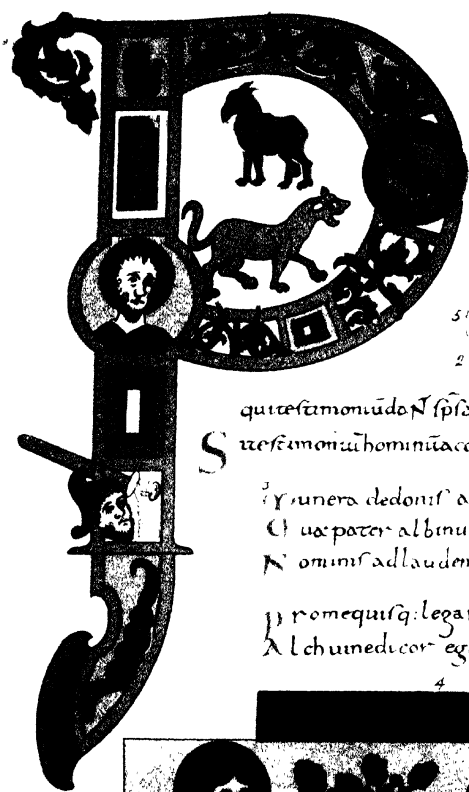 5
2
qui testimoniū daN̄ sp̄s
S i testimoniū hominū ac
3
Munera de donis a
Quæ pater albinu
Nominis ad laudem
Pro me quisq: lega
Alchuine dicor eg
4